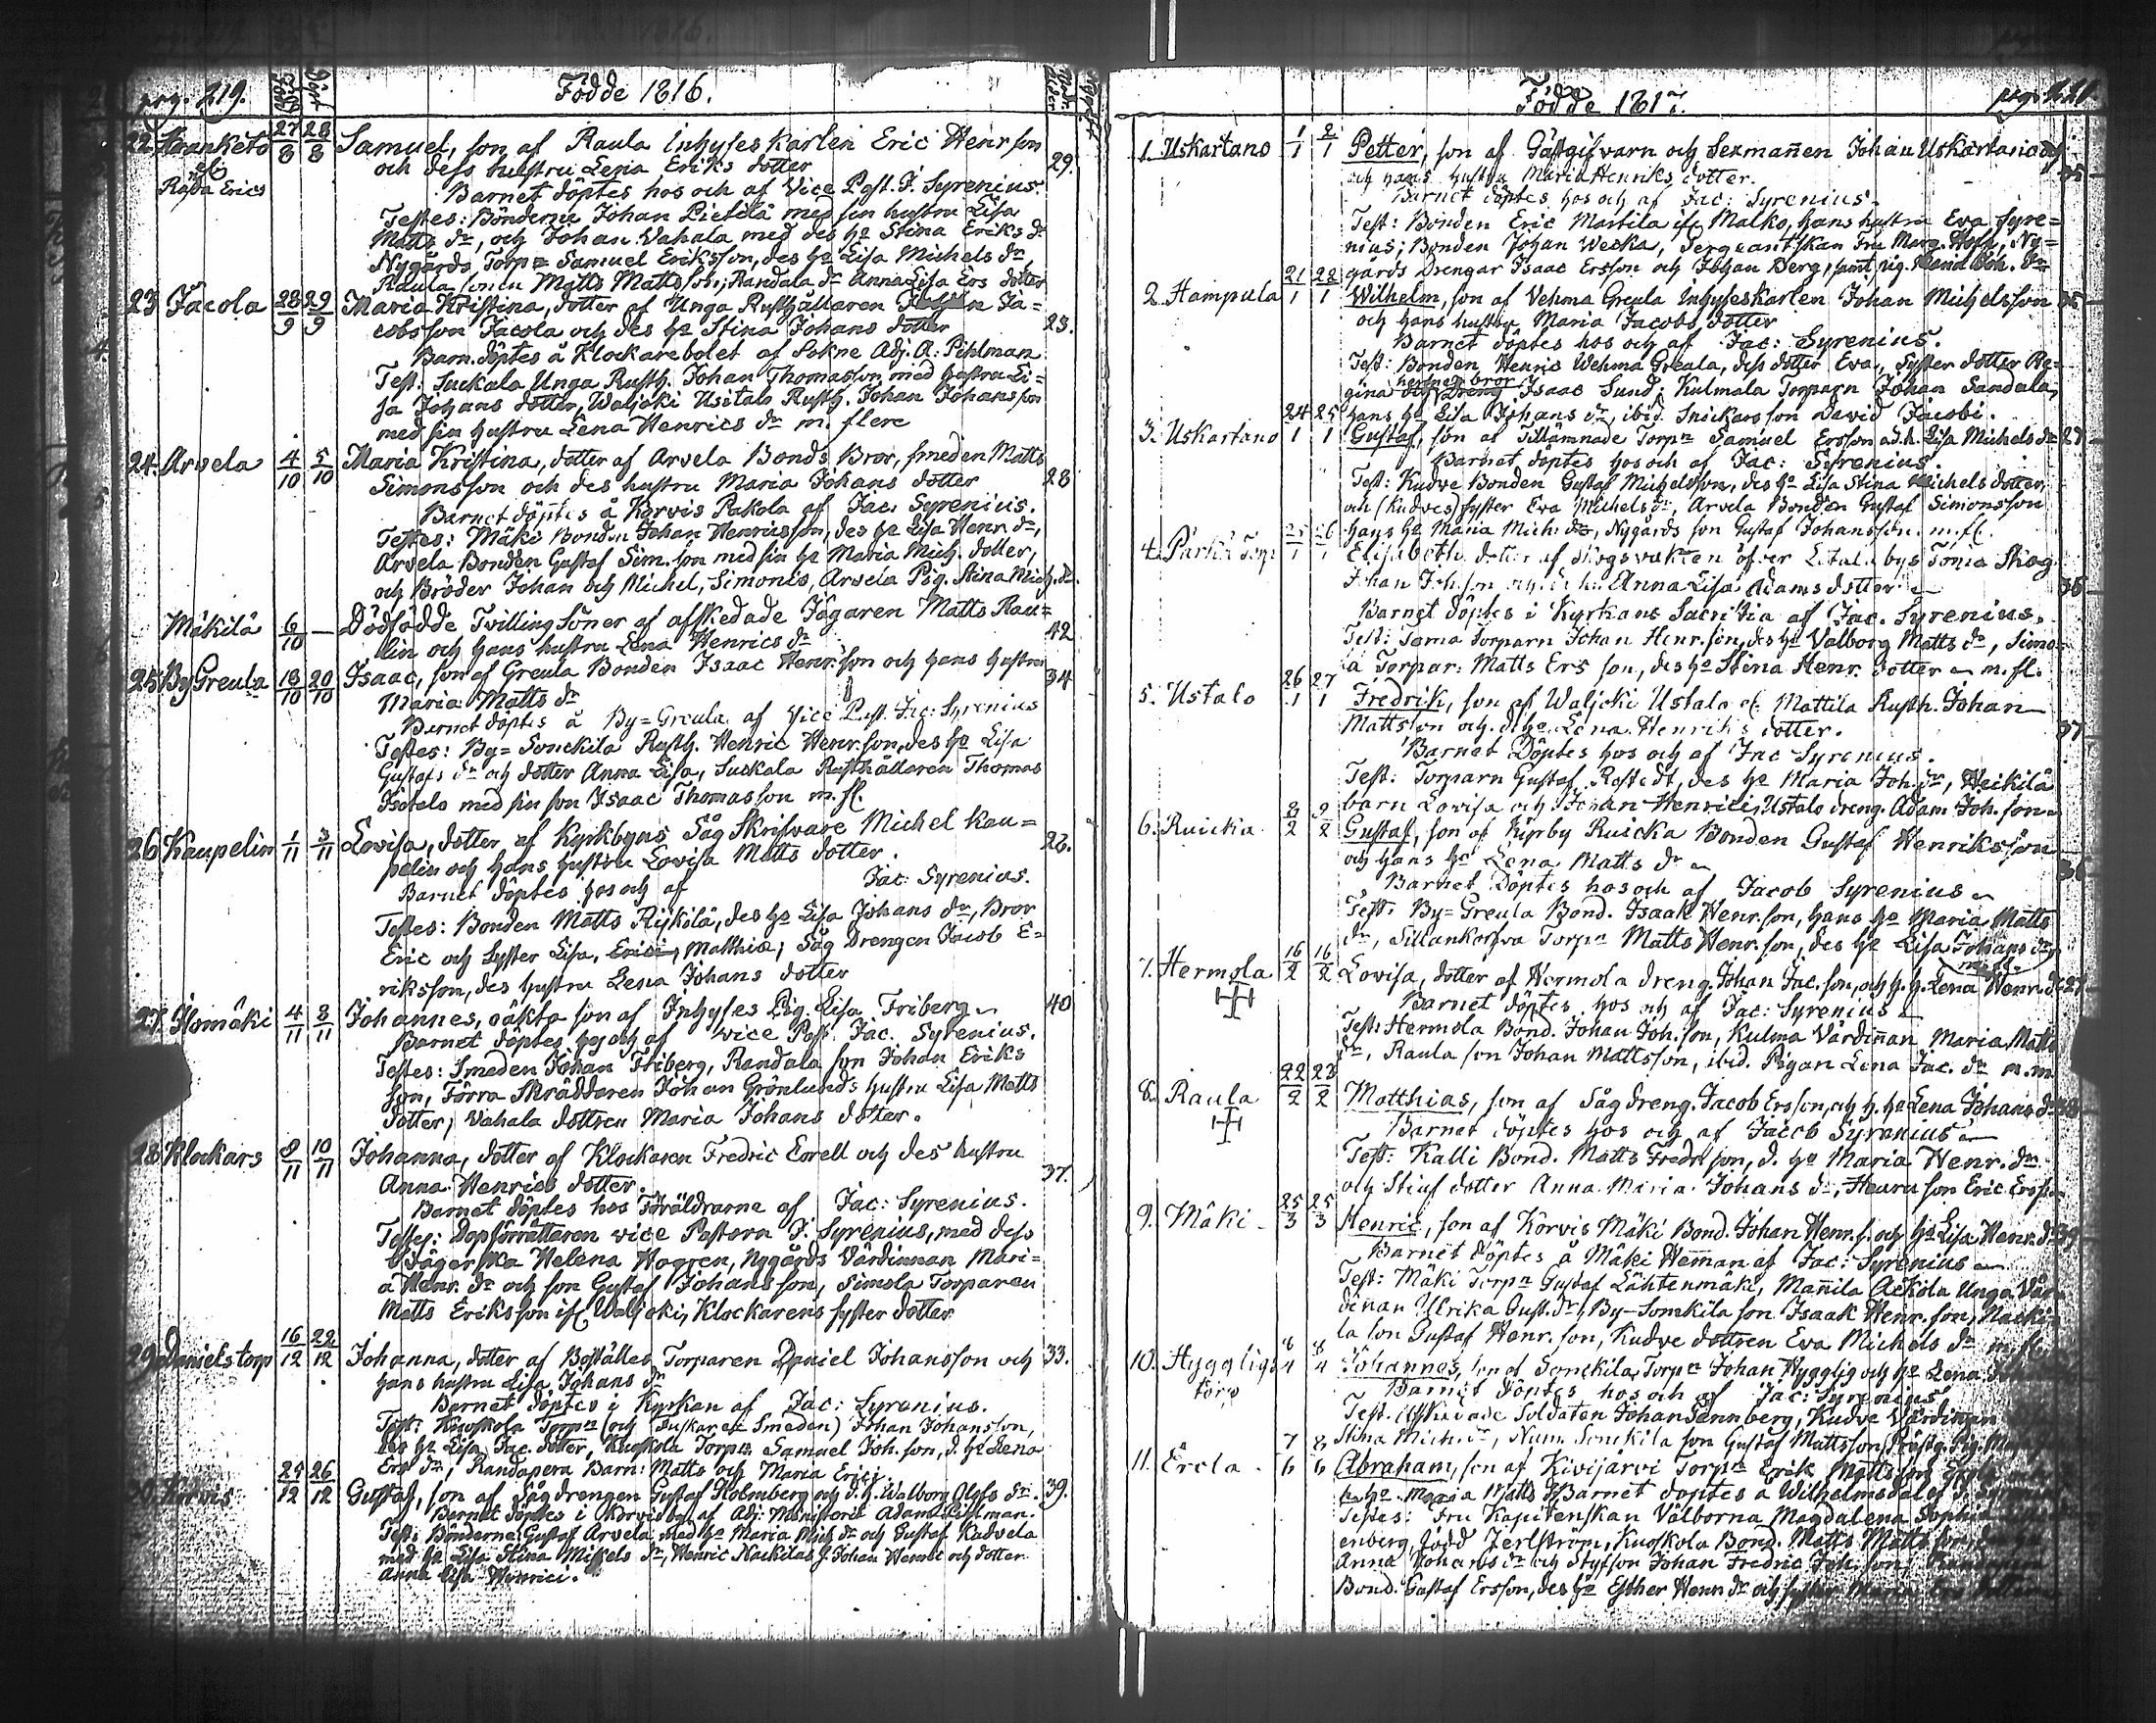 pag. 219.
Födde 1816.
Födde
Döpt
22. Kranketo 27/8 28/8 Samuel, son af Raula Inhyses Karlen Eric Henr son
et Räda Erics
och dess hustru Lena Eriks dotter 29.
Barnet döptes hos och af Vice Past. J. Syrenius.
Testes: Bönderne Johan Pietilä med sin hustru Lisa
Matts dr, och Johan Wahala med des ho Stina Eriks dr
Nygårds Torpn Samuel Eriksson, des ho Lisa Michels dr,
Raula sonen Matts Matts son, Randala dr Anna Lisa Ers dotter
23 Jacola 28/9 29/9 Maria Kristina, dotter af Unga Rusthållaren Johan Ja=
cobsson Jacola och des ho Stina Johans dotter 23.
Barn. döptes å Klockarebolet af Sokne Adj. A: Pihlman
Test. Suckala Unga Rusth. Johan Thomasson med hustru Li=
sa Johans dotter, Waljoki Usitalo Rusth. Johan Johans son
med sin hustru Lena Henrics dr m. flere
24. Arvela 4/10 5/10 Maria Kristina, dotter af Arvela Bonds Bror, smeden Matts
Simonsson och des hustru Maria Johans dotter 28
Barnet döptes å Korvis Pakola af Jac. Syrenius.
Testes: Mäki Bonden Johan Henricsson, des ho Lisa Henr. dr,
Arvela Bonden Gustaf Sim. son med sin ho Maria Mich. dotter,
och Bröder Johan och Michel, Simonis, Arvela Pig. Stina Mich. dr.
Mäkilä 6/10 — Dödfödde Tvilling Söner af afskedade Jägaren Matts Rau=
lin och hans hustru Lena Henrics dr 42
25 By Greula 18/10 20/10 Isaac, son af Greula Bonden Isaac Henr. son och hans hustru 34
Maria Matts dr
Barnet döptes å By=Greula af Vice Past. Jac: Syrenius
Testes: By=Sonckila Rusth. Henric Henr. son, des ho Lisa
Gustafs dr och dotter Anna Lisa, Suckala Rusthållaren Thomas
Isotelo med sin son Isaac Thomasson m. fl.
26 Kaupelin 1/11 3/11 Lovisa, dotter af Kyrkbyns Såg Skrifvare Michel Kau= 26.
pelin och hans hustru Lovisa Matts dotter.
Barnet döptes hos och af Jac: Syrenius.
Testes: Bonden Matts Rijkilä, des ho Lisa Johans dr, Bror
Eric och Syster Lisa, Matthiæ; Såg Drengen Jacob E=
riksson, des hustru Lena Johans dotter
27 Isomäki 4/11 8/11 Johannes, oäkta son af Inhyses Pig. Lisa Friberg 40
Barnet döptes hos och af vice Past. Jac. Syrenius.
Testes: Smeden Johan Friberg, Randala son Johan Eriks
son, Förra Skräddaren Johan Grönlunds hustru Lisa Matts
dotter, Wahala dottren Maria Johans dotter.
28 Klockars 8/11 10/11 Johanna, dotter af Klockaren Fredric Eorell och des hustru
Anna Henrics dotter. 37.
Barnet döptes hos Föräldrarne af Jac: Syrenius.
Testes: Dopförrättaren vice Pastorn J. Syrenius, med dess
Helena Hagren, Nygårds Värdinnan Mari=
a Henr. dr och son Gustaf Johansson, Simola Torparen
Matts Eriksson Waljoki, Klockarens syster dotter
29 Danielstorp 16/12 22/12 Johanna, dotter af Boställes Torparen Daniel Johansson och 33.
hans hustru Lisa Johans dr
Barnet döptes i Kyrkan af Jac: Syrenius.
Test: Knoskola Torpn (och Smeden) Johan Johansson,
des ho Lisa Jac. dotter, Knoskola Torpn Samuel Joh. son, d. ho Lena
Ers dr, Randapera Barn: Matts och Maria Erici.
30 Korvis 24/12 26/12 Gustaf, son af Sågdrengen Gustaf Holmberg och d. h. Walborg Olofs dr. 39.
Barnet döptes i Korvis by af Adj: Ministerii Adam Pihlman.
Test: Bönderne Gustaf Arvela med ho Maria Mich. dr och Gustaf Kudvela
med ho Lisa Stina Mickels dr, Henric Nackilas J. Johan Henric och dotter
Anna Lisa Henrici.
Födde 1817.
1. Uskartano 1/1 2/1 Petter, son af Gästgifvarn och Sexmannen Johan Uskartano
och hans hustru Maria Henriks dotter. 35
Barnet döptes hos och af Jac: Syrenius.
Test: Bonden Eric Mattila Malko, hans hustru Eva Syre=
nius; Bonden Johan Wecka, Sergeantskan Fru Marg. Hoth, Ny=
gårds Drengar Isaac Ersson och Johan Berg, samt pig. Maria Joh. dr
2. Hampula 21/1 22/1 Wilhelm, son af Vehma Greula Inhyseskarlen Johan Michelsson 35
och hans hustru Maria Jacobs dotter
Barnet döptes hos och af Jac: Syrenius.
Test: Bonden Henric Wehma Greula, dess dotter Eva, Syster dotter Re=
hennes bror
gina och Dreng Isaac Sund; Kulmala Torparn Johan Sandala,
hans ho Lisa Johans dr, ibid. Snickars son David Jacobi.
3. Uskartano 24/1 25/1 Gustaf, son af Tillämnade Torpn Samuel Ersson a. d. h. Lisa Michels dr 27
Barnet döptes hos och af Jac: Syrenius.
Test: Kudve Bonden Gustaf Michelsson, des ho Lisa Stina Michels dotter,
och (Kudves) syster Eva Michels dr, Arvela Bonden Gustaf Simonsson
hans ho Maria Mich: dr, Nygårds son Gustaf Johansson. m. fl.
4. Pärkä Torp 25/1 26/1 Elisabeth, dotter af Skogsvakten öfver bys Tomia Skog
Johan Joh. son Anna Lisa Adams dotter 36
Barnet döptes i Kyrkans Sacristia af Jac. Syrenius.
Test: Tama Torparn Johan Henr. son, des ho Valborg Matts dr, Simo=
la Torpar: Matts Ers son, des ho Stina Henr. dotter m. fl.
5. Ustalo 26/1 27/1 Fredrik, son af Waljoki Ustalo Mattila Rusth. Johan
Mattsson och d. ho Lena Henriks dotter. 37
Barnet Döptes hos och af Jac Syrenius.
Test: Torparn Gustaf Rostedt, des ho Maria Joh. dr, Heikilä
barn Lovisa och Johan Henrici, Ustalo dreng. Adam Joh. son
6. Ruicka 8/2 9/2 Gustaf, son af Kyrby Ruicka Bonden Gustaf Henriksson
och hans ho Lena Matts dr 36
Barnet Döptes hos och af Jacob Syrenius
Test: By=Greula Bond. Isaak Henr. son, hans ho Maria Matts
dr, Sillankorva Torpn Matts Henr. son, des ho Lisa Johans dr
m. fl.
7. Hermola 16/2 16/2 Lovisa, dotter af Hermola dreng. Johan Jac. son, och h. h. Lena Henr. dr 27
Barnet döptes hos och af Jac: Syrenius
Test: Hermola Bond. Johan Joh. son, Kulma Värdinnan Maria Matts
dr, Raula son Johan Mattsson, ibid. Pigan Lena Jac. dr m. m.
8. Raula 22/2 23/2 Matthias, son af Såg dreng. Jacob Ersson, och h. ho Lena Johans dr
Barnet döptes hos och af Jacob Syrenius
Test: Kalli Bond. Matts Fredr. son, d. ho Maria Henr. dr
och Stiuf dotter Anna Maria Johans dr, Heuru son Eric Ersson
9. Mäki 25/3 25/3 Henric, son af Korvis Mäki Bond. Johan Henr. s. och ho Lisa Henr. dr 39
Barnet döptes å Mäki Heman af Jac: Syrenius
Test: Mäki Torpn Gustaf Lähtenmäki, Mannila Ackola Unga Vär=
dinan Ulrika Gust. dr, By-Sonckila son Isaak Henr. son, Nacki=
la son Gustaf Henr. son, Kudve dottren Eva Michels dr m. fl.
10. Hyggligs 8/4 8/4 Johannes, son af Sonckila Torpn Johan Hygglig och ho Lena
torp
Barnet döptes hos och af Jac: Syrenius
Test. Afskedade Soldaten Johan Tannberg, Kudve Värdinnan
Stina Mich. dr, Num. Sonckila son Gustaf Mattsson, Prästg. Pig.
11. Ercla 7/6 8/6 Abraham, son af Kivijärvi Torpn Erik Matts son
ho Maria Matts Barnet döptes å Wilhelmsdal af
Testes: Fru Kapitenskan Välborna Magdalena Sophia
enberg, född Zerlström, Knoskola Bond. Matts Matts son
Anna Johans dr och Styfson Johan Fredric Joh. son
Bond. Gustaf Ersson, des ho Esther Henr dr och syster Maria Ers dotter